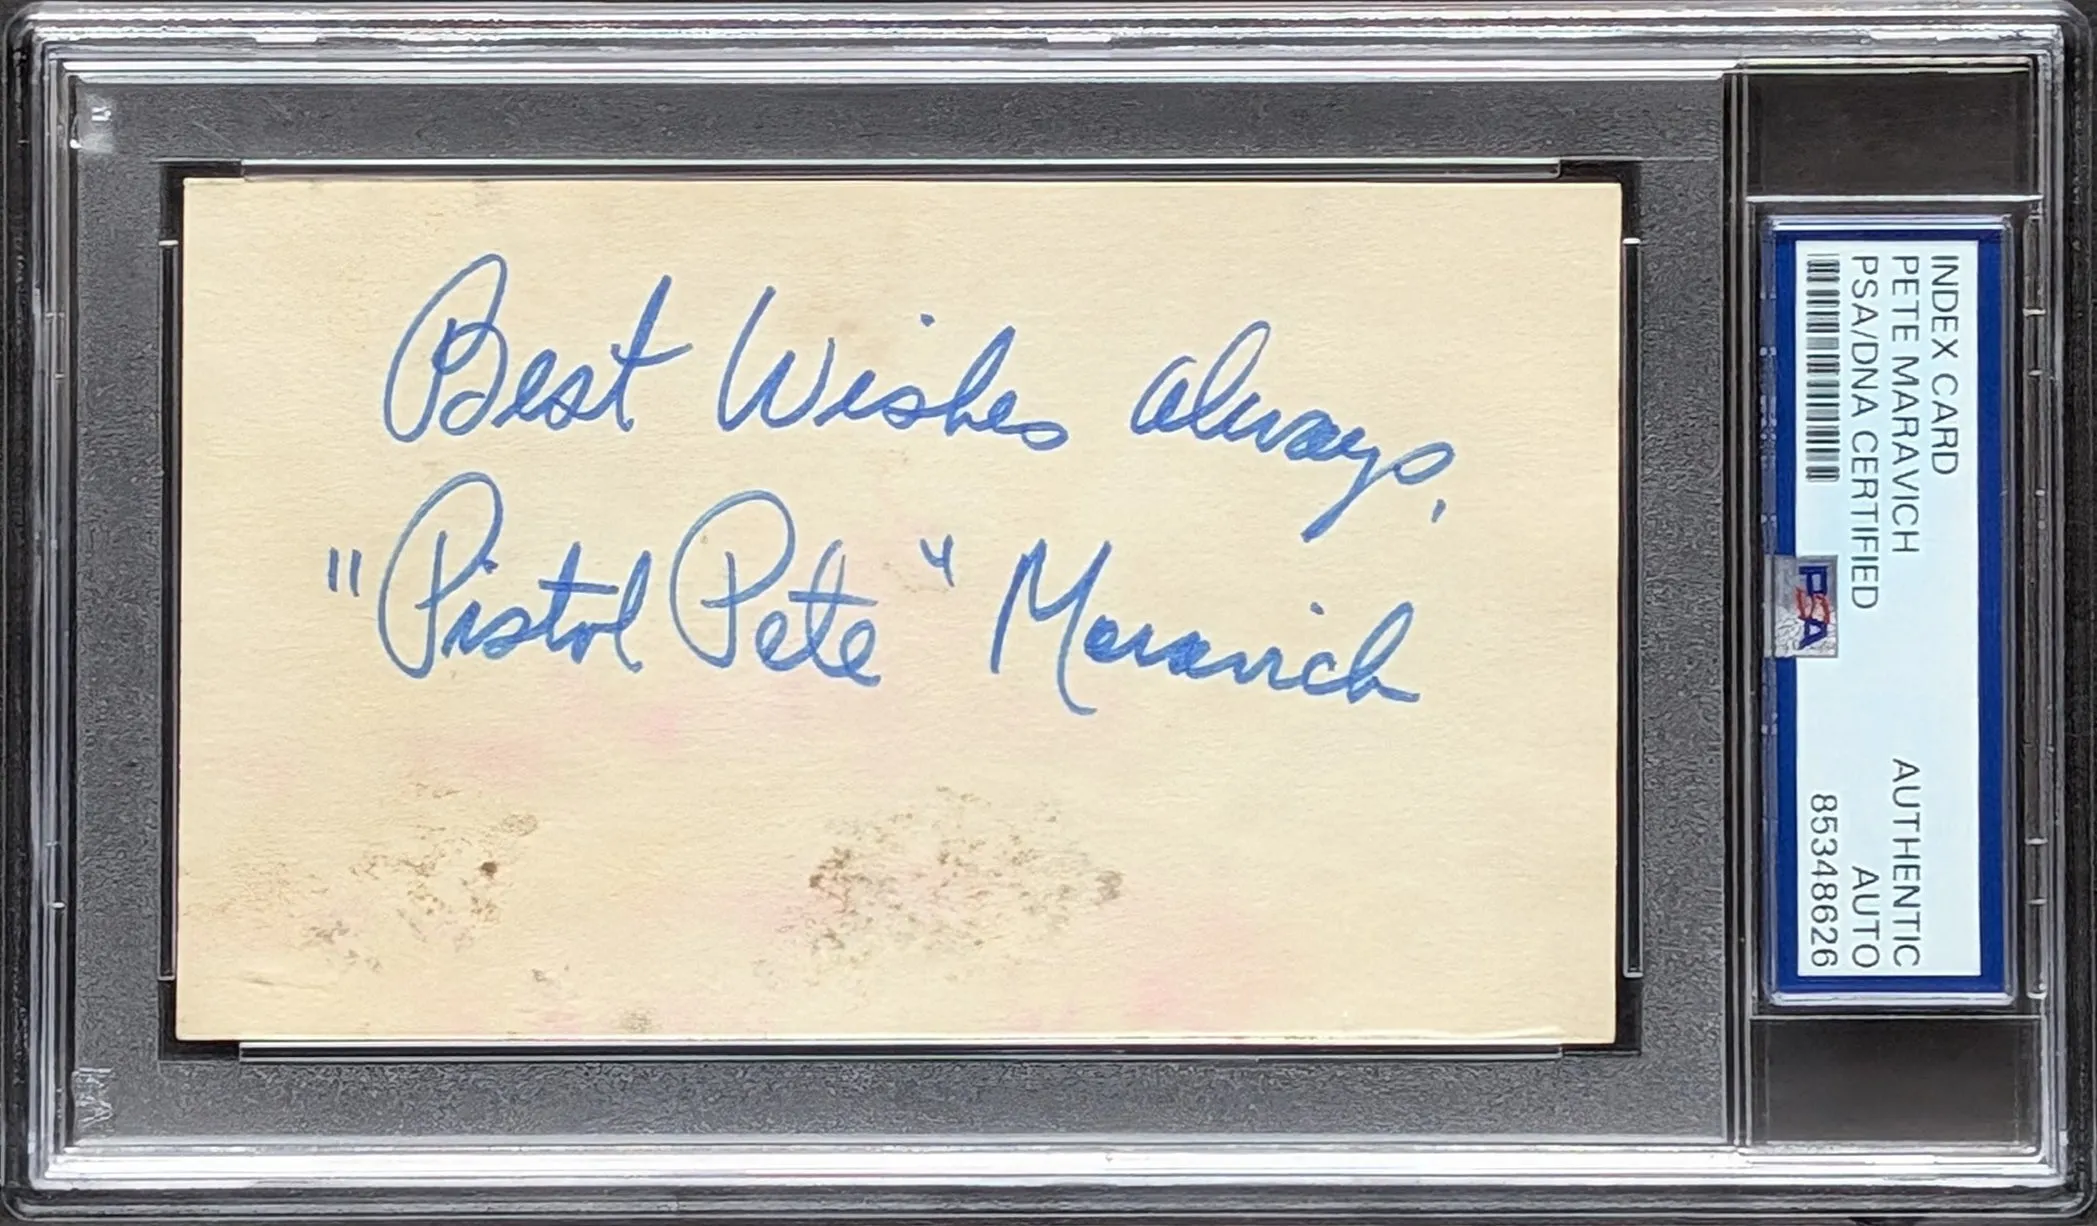 Best Wishes always,
"Pistol Pete" Maravich
INDEX CARD
PETE MARAVICH AUTHENTIC
PSA/DNA CERTIFIED AUTO
85348626
PSA